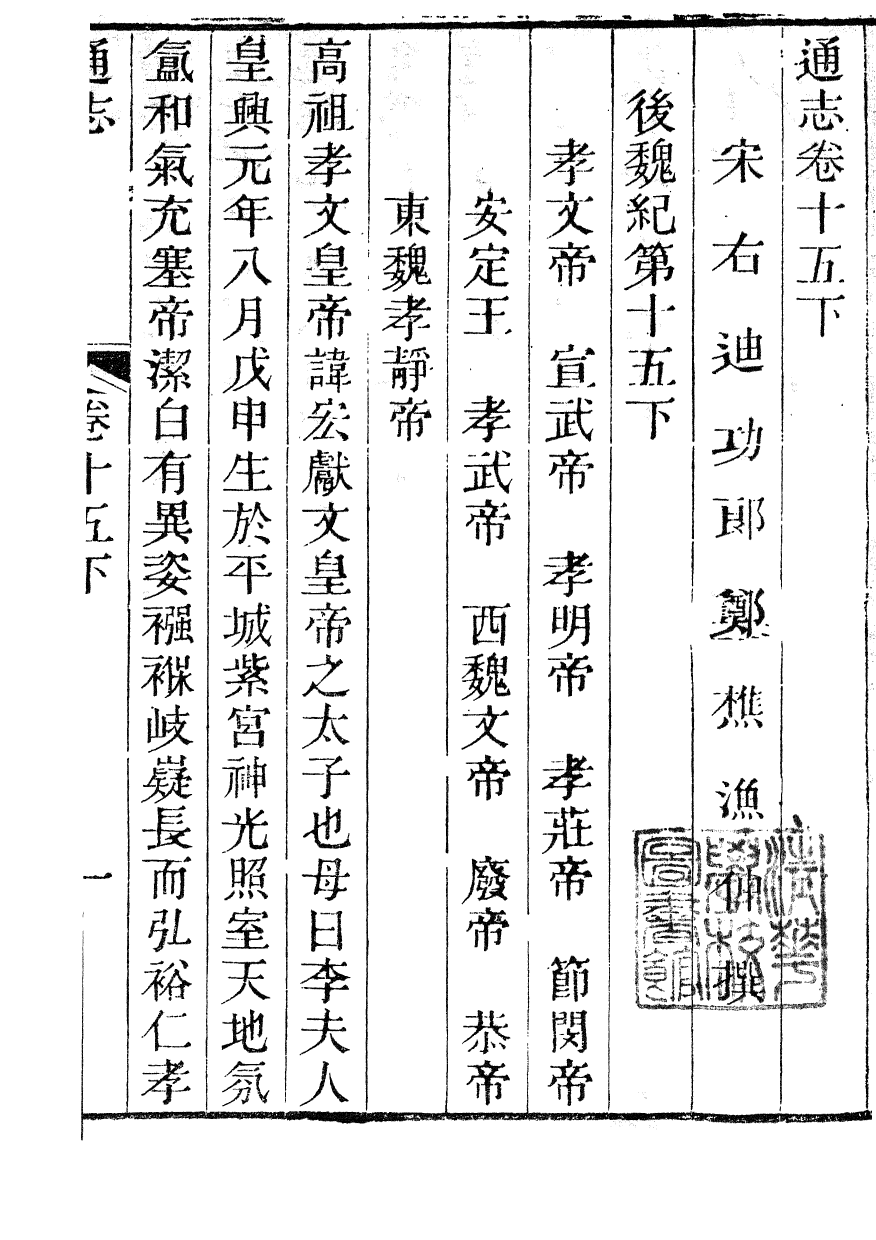 通志卷十五下
宋右迪功郎鄭樵漁仲撰
後魏紀第十五下
孝文帝 宣武帝 孝明帝 孝莊帝 節閔帝
安定王 孝武帝 西魏文帝 廢帝 恭帝
東魏孝靜帝
高祖孝文皇帝諱宏獻文皇帝之太子也母曰李夫人
皇興元年八月戊申生於平城紫宮神光照室天地氛
氳和氣充塞帝潔白有異姿襁褓岐嶷長而弘裕仁孝
通志 卷十五下 一
清華學校圖書館